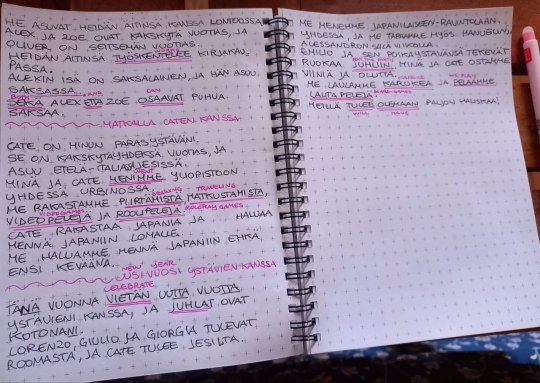 HE ASUVAT HEIDÄN ÄITINSÄ KANSSA LONTOOSSA
ALEX JA ZOE OVAT KAKSKYTÄ VUOTIAS, JA
OLIVER ON SEITSEMÄN VUOTIAS.
WORKS
HEIDÄN ÄITINSÄ TYÖSKENTELEE KIRJAKAU-
PASSA.
ALEXIN ISÄ ON SAKSALAINEN, JA HÄN ASUU
SAKSASSA.
AND CAN
SEKÄ ALEX ETTÄ ZOE OSAAVAT PUHUA
SAKSAA.
MATKALLA CATEN KANSSA
CATE ON MINUN PARASYSTÄVÄNI.
SE ON KAKSKYTÄYHDEKSÄ VUOTIAS, JA
ASUU ETELÄ-ITALIASSA JESISSÄ.
WENT
MINÄ JA CATE MENIMME YLIOPISTOON
YHDESSÄ URBINOSSA.
DRAWING TRAVELING
ME RAKASTAMME PIIRTÄMISTÄ, MATKUSTAMISTA,
VIDEOGAMES ROLEPLAY GAMES
VIDEOPELEJÄ JA ROOLIPELEJÄ.
CATE RAKASTAA JAPANIA JA HALUAA
MENNÄ JAPANIIN LOMALLE.
ME HALUAMME MENNÄ JAPANIIN EHKÄ
ENSI KEVÄÄNÄ.
NEW YEAR
UUSI VUOSI YSTÄVIEN KANSSA
CELEBRATE
TÄNÄ VUONNA VIETÄN UUTTA VUOTTA
YSTÄVIENI KANSSA, JA JUHLAT OVAT
KOTONANI.
LORENZO, GIULIO JA GIORGIA TULEVAT
ROOMASTA, JA CATE TULEE JESILTA.
ME MENEMME JAPANILAISEEN RAVINTOLAAN
YHDESSÄ, JA ME TAPAAMME MYÖS
ALESSANDRON SILLÄ VIIKOLLA.
EMILIO JA SEN POIKAYSTÄVÄNSÄ TEKEVÄT
FOR THE PARTY
RUOKAA JUHLIIN. MINÄ JA CATE OSTAMME
VIINIÄ JA OLUTTA.
KARAOKE WE PLAY
ME LAULAMME KARAOKEA JA PELAAMME
BOARD GAMES
LAUTAPELEJÄ.
MEILLÄ TULEE OLEMAAN PALJON HAUSKAA!
WILL HAVE